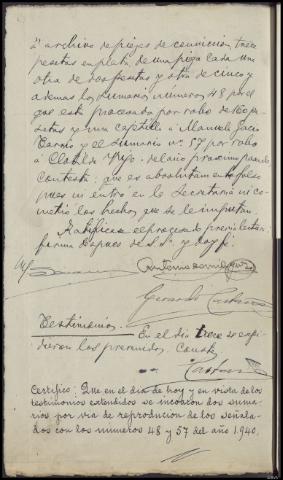 el archivo de piezas de convicción, trece
pesetas en plata, de una pieza cada una
otra de dos pesetas y otra de cinco y
ademas los sumarios números 48 por el
que está procesado por robo de pe-
setas y una a Manuela
y el sumario nº 57 por robo
a del año proximo pasado
contesta: que es absolutamente falso
pues ni entró en la Secretaría ni co-
metió los hechos que se le imputan.
Ratificase el procesado previa lectura
firma despues de S.Sª y doy fé.
Antonio
Gerardo
Testimonios. En el dia trece se expi-
dieron los prevenidos. Consta
Certifico: Que en el dia de hoy y en vista de los
testimonios extendidos se incoaron dos suma-
rios por via de reproducion de los señala-
dos con los numeros 48 y 57 del año 1.940.